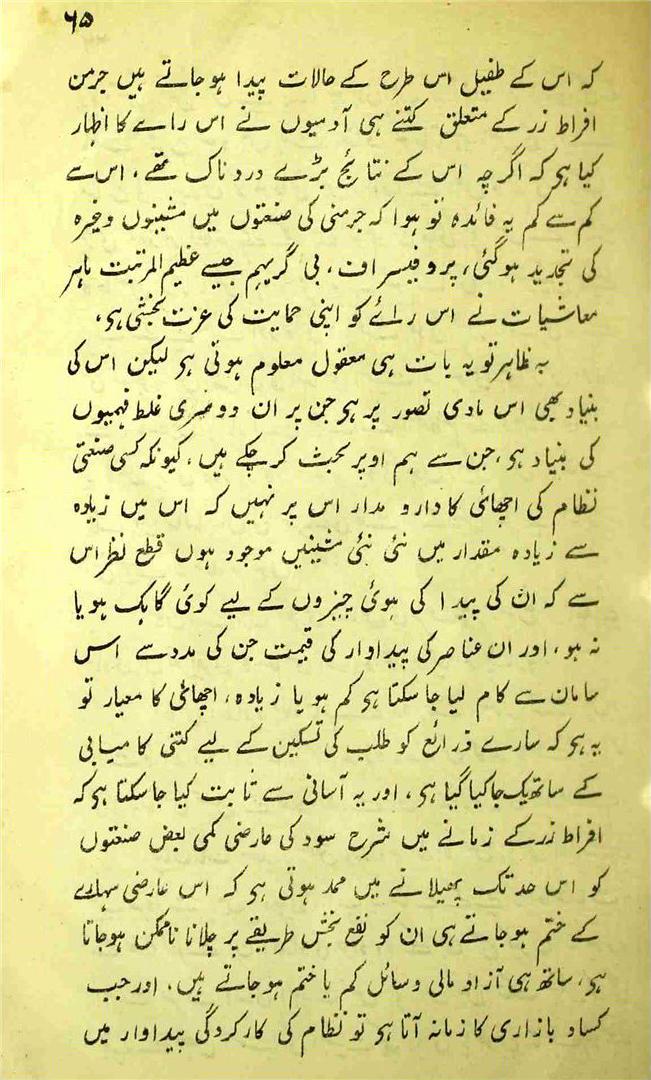 ۶۵
کہ اس کے طفیل اس طرح کے حالات پیدا ہوجاتے ہیں جرمن
افراط زر کے متعلق کتنے ہی آدمیوں نے اس رائے کا اظہار
کیا ہی کہ اگرچہ اس کے نتائج بڑے دردناک تھے، اس سے
کم سے کم یہ فائدہ تو ہوا کہ جرمنی کی صنعتوں میں مشینوں وغیرہ
کی تجدید ہوگئی، پروفیسر اف، بی گریہم جیسے عظیم المرتبت ماہر
معاشیات نے اس رائے کو اپنی حمایت کی عزت بخشی ہی،
بہ ظاہر تو یہ بات ہی معقول معلوم ہوتی ہی لیکن اس کی
بنیاد بھی اس مادی تصور پر ہی جن پر ان دوسری غلط فہمیوں
کی بنیاد ہی، جن سے ہم اوپر بحث کر چکے ہیں، کیونکہ کسی صنعتی
نظام کی اچھائی کا دار و مدار اس پر نہیں کہ اس میں زیادہ
سے زیادہ مقدار میں نئی نئی مشینیں موجود ہوں قطع نظر اس
سے کہ ان کی پیدا کی ہوئی چیزوں کے لیے کوئی گاہک ہو یا
نہ ہو، اور ان عناصر کی پیداوار کی قیمت جن کی مدد سے اس
سامان سے کام لیا جا سکتا ہی کم ہو یا زیادہ، اچھائی کا معیار تو
یہ ہی کہ سارے ذرائع کو طلب کی تسکین کے لیے کتنی کامیابی
کے ساتھ یک جا کیا گیا ہی، اور یہ آسانی سے ثابت کیا جا سکتا ہی کہ
افراط زر کے زمانے میں شرح سود کی عارضی کمی بعض صنعتوں
کو اس حد تک پھیلانے میں ممد ہوتی ہی کہ اس عارضی سہارے
کے ختم ہو جاتے ہی ان کو نفع بخش طریقے پر چلانا ناممکن ہوجاتا
ہی، ساتھ ہی آزاد مالی وسائل کم یا ختم ہوجاتے ہیں، اور جب
کساد بازاری کا زمانہ آتا ہی تو نظام کی کارکردگی پیداوار میں